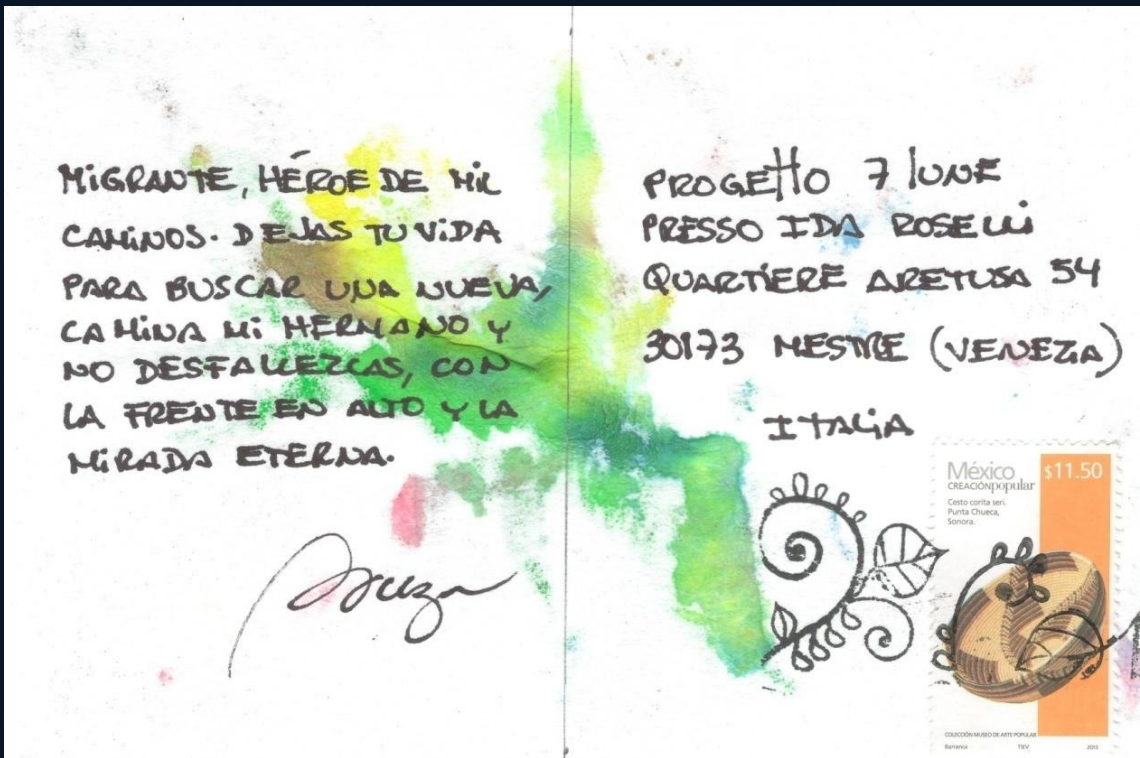 MIGRANTE, HÉROE DE MIL
CAMINOS. DEJAS TU VIDA
PARA BUSCAR UNA NUEVA,
CAMINA MI HERMANO Y
NO DESFALLEZCAS, CON
LA FRENTE EN ALTO Y LA
MIRADA ETERNA.
PROGETTO 7 LUNE
PRESSO IDA ROSELLI
QUARTIERE ARETUSA 54
30173 MESTRE (VENEZIA)
ITALIA
México $11.50
CREACIÓNpopular
Cesto corita seri.
Punta Chueca,
Sonora.
COLECCIÓN MUSEO DE ARTE POPULAR
Barranca TIEV 2013